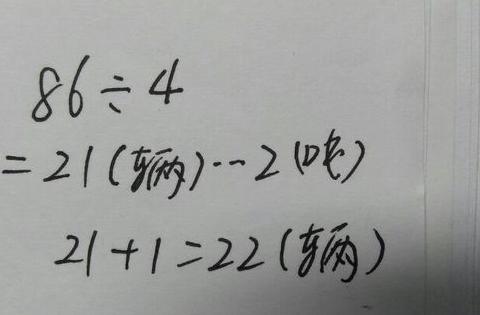 86÷4
=21(辆)…2(吨)
21+1=22(辆)